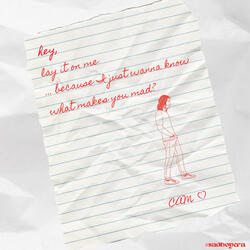 hey,
lay it on me
... because I just wanna know
what makes you mad?
cam ♡
@sadhopera